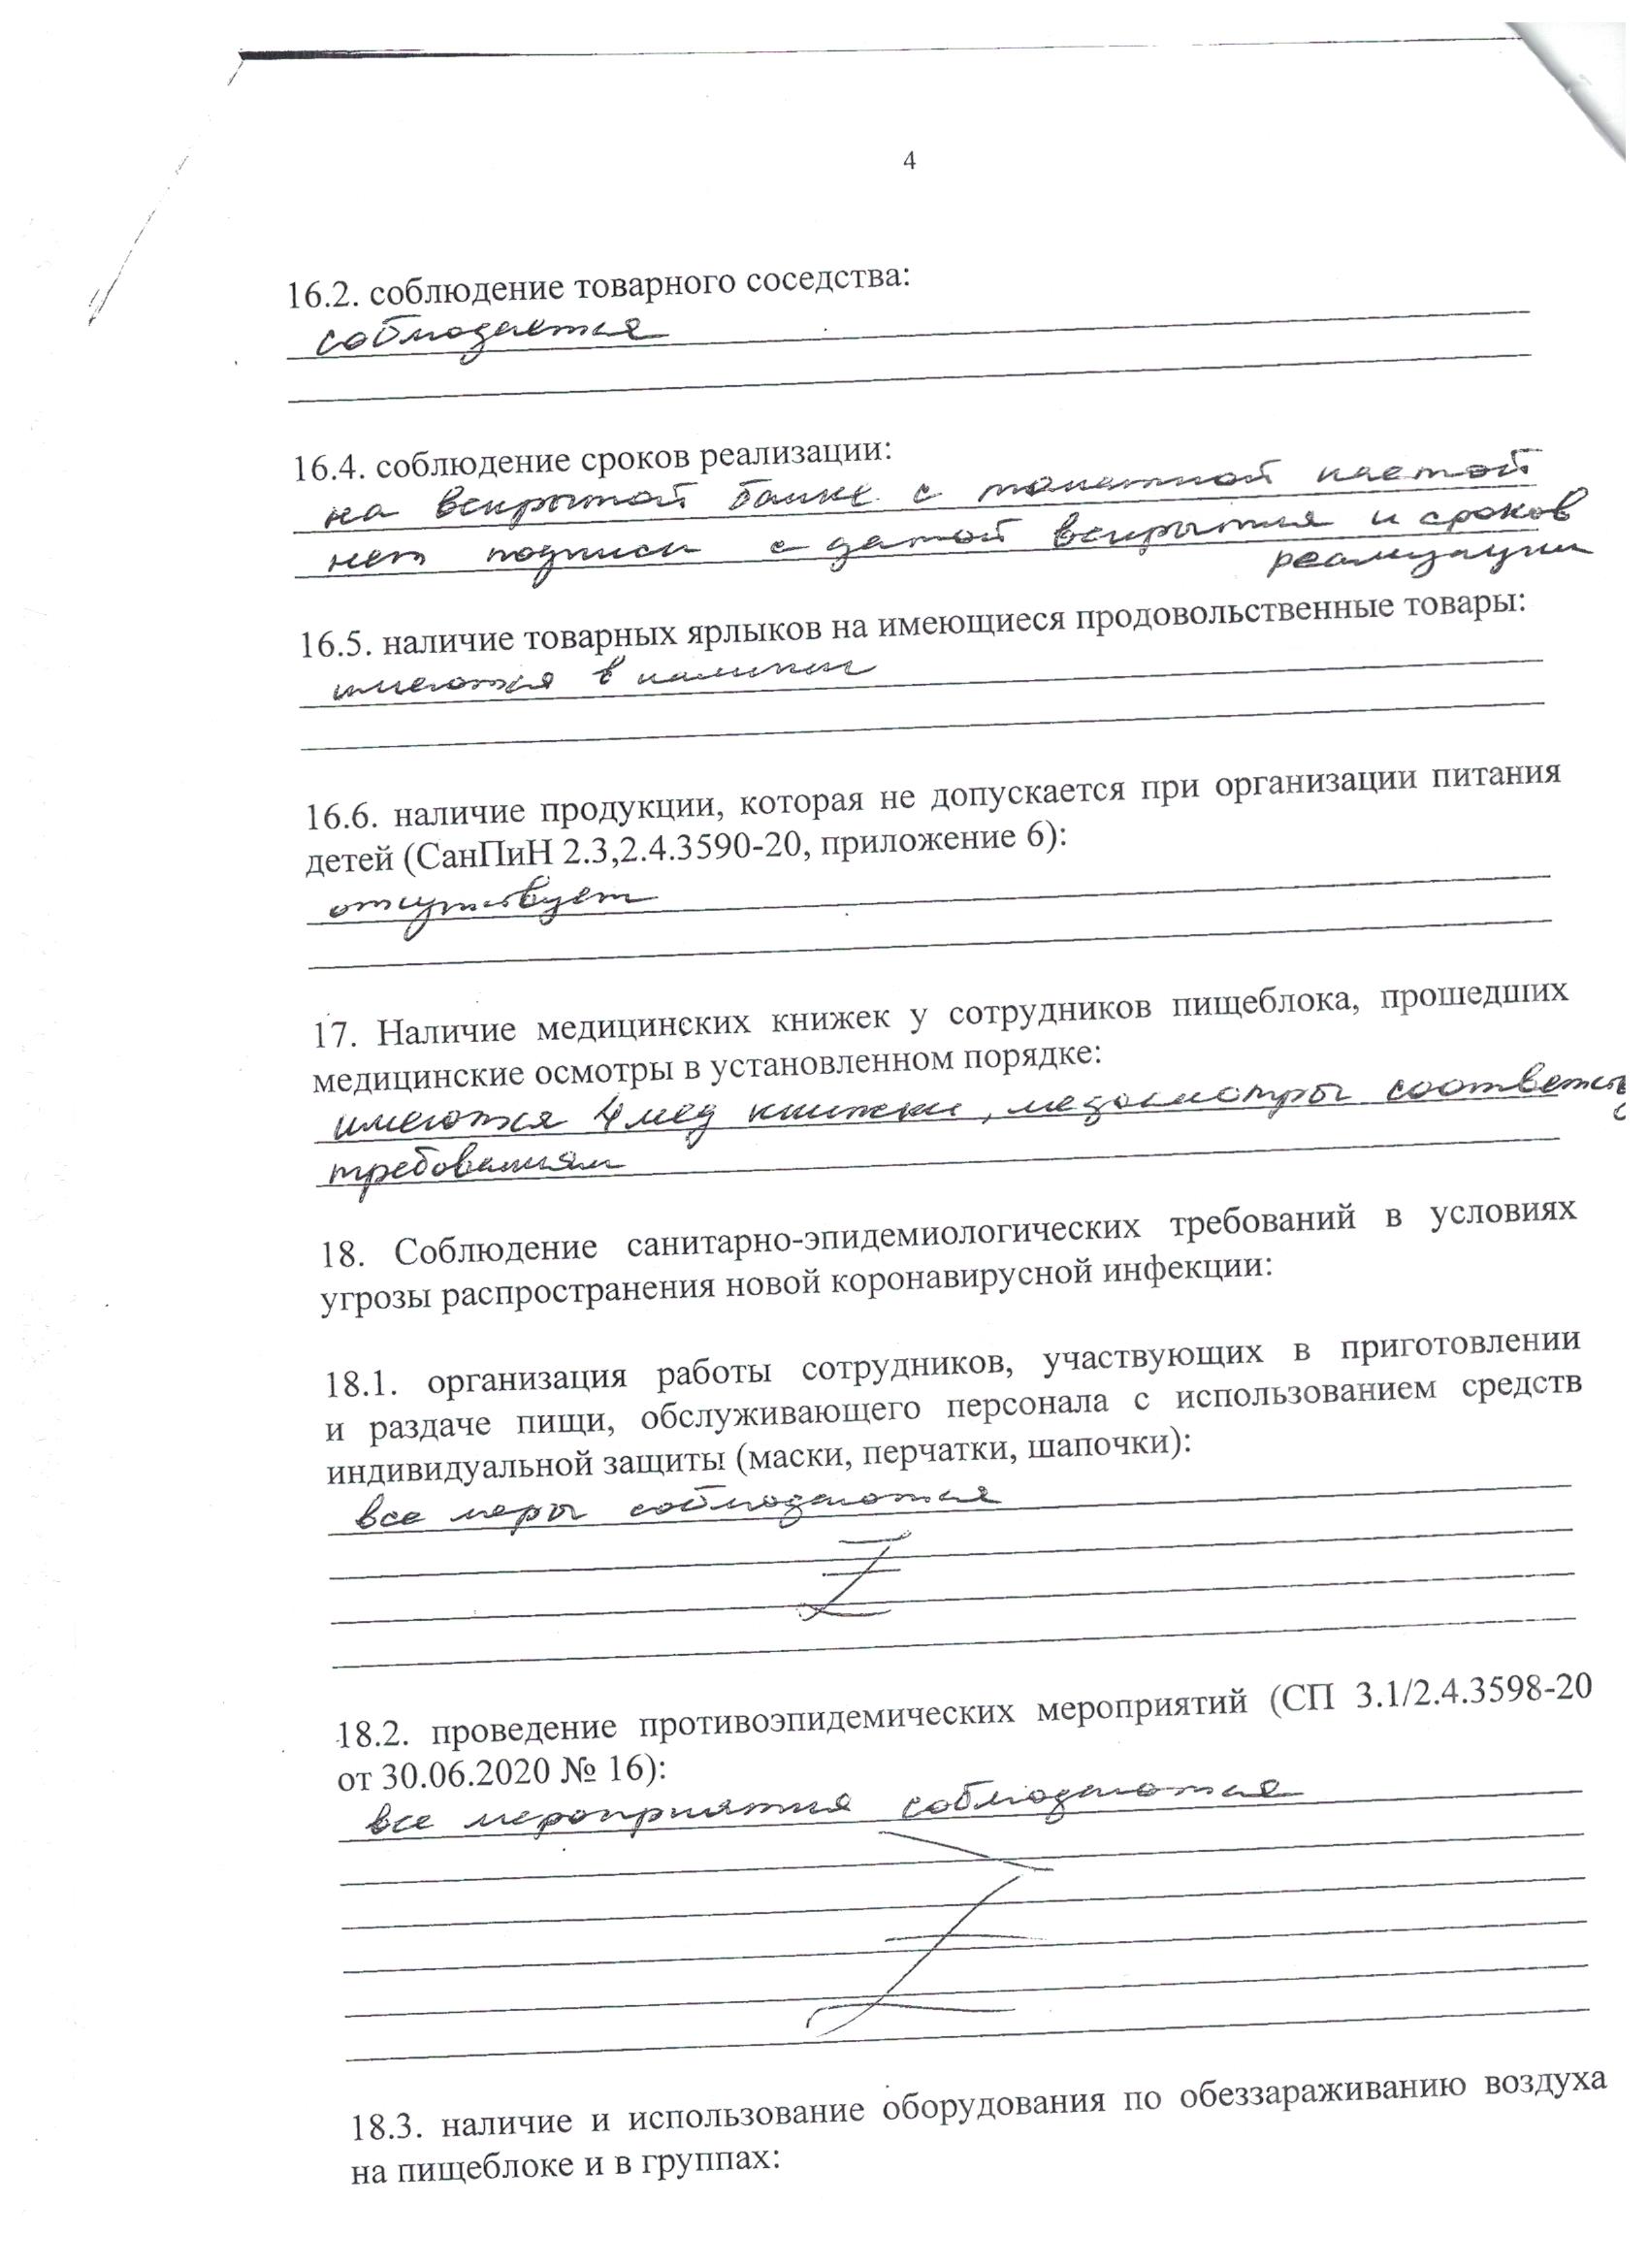 4
16.2. соблюдение товарного соседства:
соблюдается
16.4. соблюдение сроков реализации:
на вскрытой банке с томатной пастой
нет подписи с датой вскрытия и сроков
реализации
16.5. наличие товарных ярлыков на имеющиеся продовольственные товары:
имеются в наличии
16.6. наличие продукции, которая не допускается при организации питания
детей (СанПиН 2.3,2.4.3590-20, приложение 6):
отсутствует
17. Наличие медицинских книжек у сотрудников пищеблока, прошедших
медицинские осмотры в установленном порядке:
имеются 4 мед книжки, медосмотры
требованиям
18. Соблюдение санитарно-эпидемиологических требований в условиях
угрозы распространения новой коронавирусной инфекции:
18.1. организация работы сотрудников, участвующих в приготовлении
и раздаче пищи, обслуживающего персонала с использованием средств
индивидуальной защиты (маски, перчатки, шапочки):
все меры соблюдаются
18.2. проведение противоэпидемических мероприятий (СП 3.1/2.4.3598-20
от 30.06.2020 № 16):
все мероприятия соблюдаются
18.3. наличие и использование оборудования по обеззараживанию воздуха
на пищеблоке и в группах: